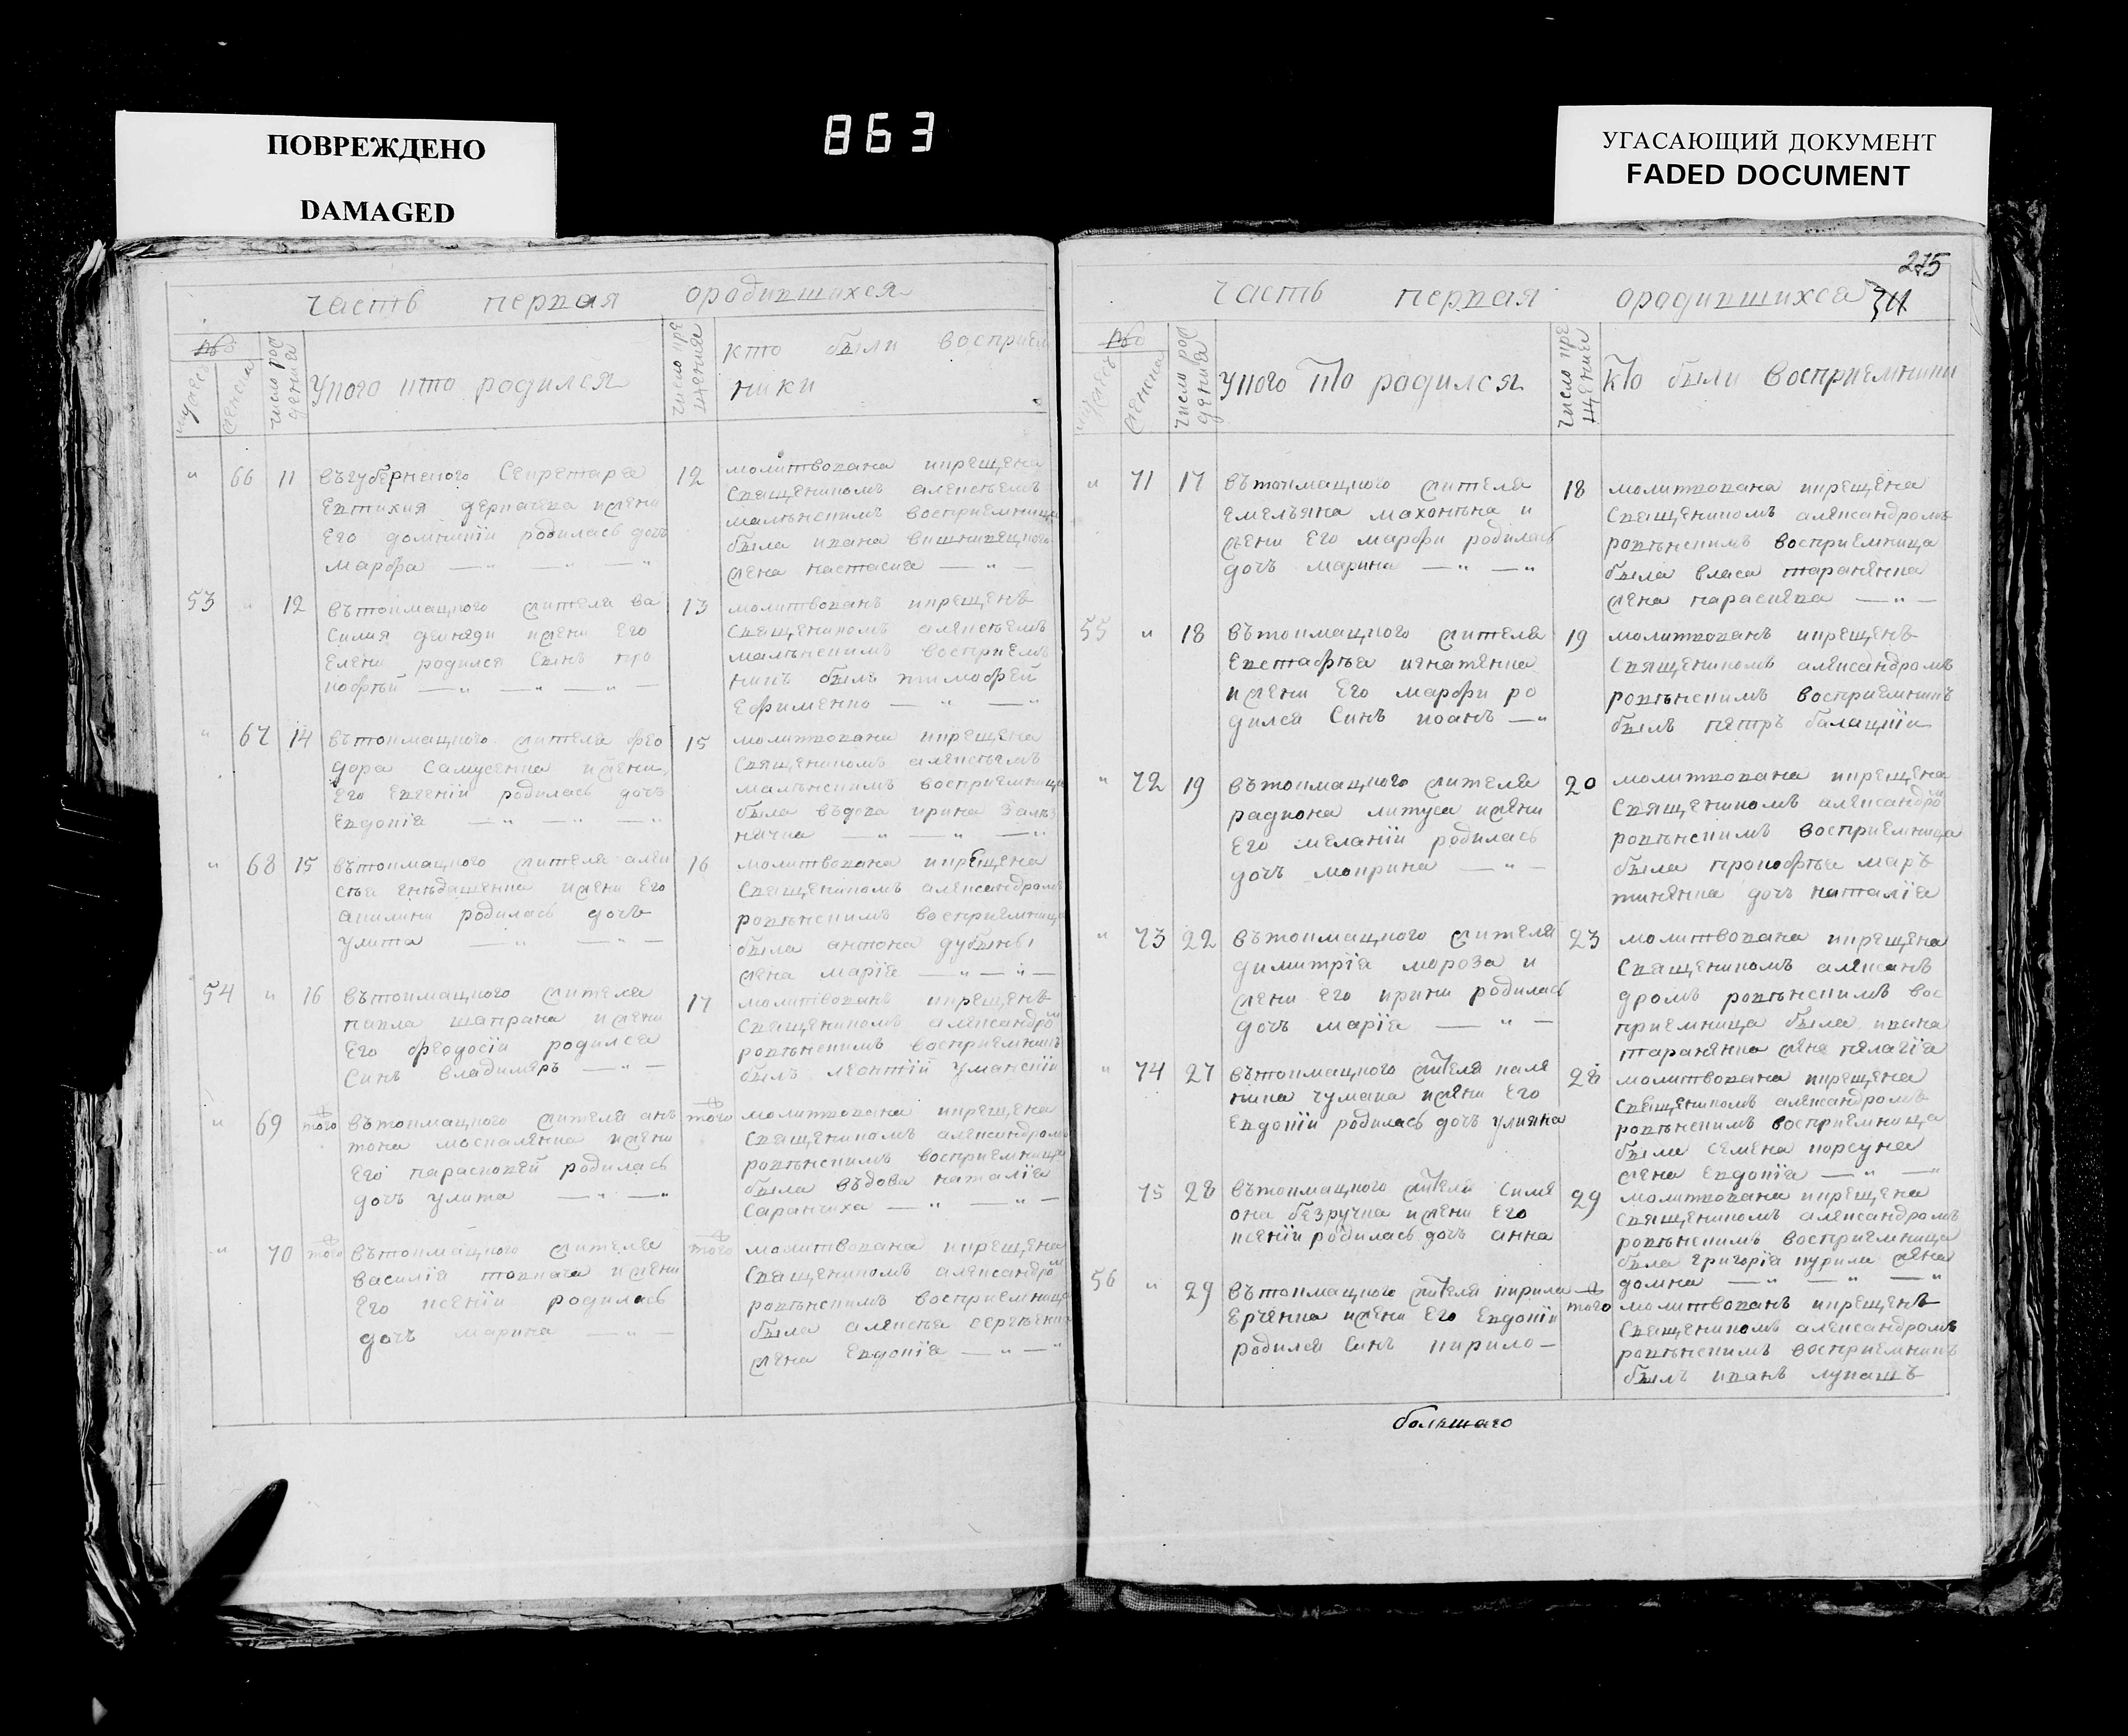 ПОВРЕЖДЕНО
DAMAGED
863
УГАСАЮЩИЙ ДОКУМЕНТ
FADED DOCUMENT
часть первая ородившихся
№
мужеска
женска
число рождения
Укого кто родился
число крещения
кто были восприем
ники
" 66 11 въгубернского Секретаря
Евтихия деркачева ижени
Его домникіи родилась дочъ
марфа
12 молитвована икрещена
Священикомъ алексѣемъ
малѣнскимъ восприемница
была ивана вишнивецкого
жена настасия
53 " 12 вътокмацкого жителя ва
силия ижени Его
Елени родился Сынъ про
кофѣй
13 молитвованъ икрещенъ
Священикомъ алексѣемъ
малѣнскимъ восприем
никъ былъ тимофей
Ефименко
" 67 14 вътокмацкого жителя фео
дора Самусенка ижени
Его Евгеніи родилась дочъ
Евдокія
15 молитвована икрещена
Священикомъ алексѣемъ
малѣнскимъ восприемница
была въдова ирина
" 68 15 вътокмацкого жителя алек
сѣя ижени Его
акилини родилась дочъ
улита
16 молитвована икрещена
Священикомъ александромъ
ровѣнскимъ восприемница
была антона дубыны
жена марія
54 " 16 вътокмацкого жителя
павла шапрана ижени
Его феодосіи родился
Синъ владимѣръ
17 молитвованъ икрещенъ
Священикомъ александромъ
ровѣнскимъ восприемникъ
былъ леонтій уманскій
" 69 того вътокмацкого жителя анъ
тона москаленка ижени
Его парасковей родилась
дочъ улита
того молитвована икрещена
Священикомъ александромъ
ровѣнскимъ восприемница
была въдова наталія
Саранчиха
" 70 того вътокмацкого жителя
василія товкача ижени
Его ксеніи родилась
дочъ марина
того молитвована икрещена
Священикомъ александромъ
ровѣнскимъ восприемница
была алексѣя сергѣенка
жена Евдокія
275
часть первая ородившихся
№
мужеска
женска
число рождения
укого кто родился
число крещения
кто были восприемники
" 71 17 вътокмацкого жителя
емелъяна махонѣка и
жени Его марфи родилась
дочъ марина
18 молитвована икрещена
Священикомъ александромъ
ровѣнскимъ восприемница
была власа таранѣнка
жена параскева
55 " 18 вътокмацкого жителя
Евстафѣя игнатенка
ижени Его марфи ро
дился Синъ иоанъ
19 молитвованъ икрещенъ
Священикомъ александромъ
ровѣнскимъ восприемникъ
былъ петръ балацкій
" 72 19 вътокмацкого жителя
радиона литуса ижени
Его меланіи родилась
дочъ мокрина
20 молитвована икрещена
Священикомъ александромъ
ровѣнскимъ восприемница
была прокофѣя маръ
тиненка дочъ наталія
" 73 22 вътокмацкого жителя
димитрія мороза и
жени Его ирини родилась
дочъ марія
23 молитвована икрещена
Священикомъ алексанъ
дромъ ровѣнскимъ вос
приемница была ивана
таранѣнка жена пелагія
" 74 27 вътокмацкого жителя кале
ника чумака ижени Его
Евдокіи родилась дочъ улияна
28 молитвована икрещена
Священикомъ александромъ
ровѣнскимъ восприемница
была Семена корсуна
жена Евдокія
75 28 вътокмацкого жителя Симе
она безручка ижени Его
ксеніи родилась дочъ анна
29 молитвована икрещена
Священикомъ александромъ
ровѣнскимъ восприемница
была григорія курила жена
домна
56 " 29 вътокмацкого жителя кирила
Ерченка ижени Его Евдокіи
родился Синъ кирило
того молитвованъ икрещенъ
Священикомъ александромъ
ровѣнскимъ восприемникъ
былъ иванъ лукашъ
большаго